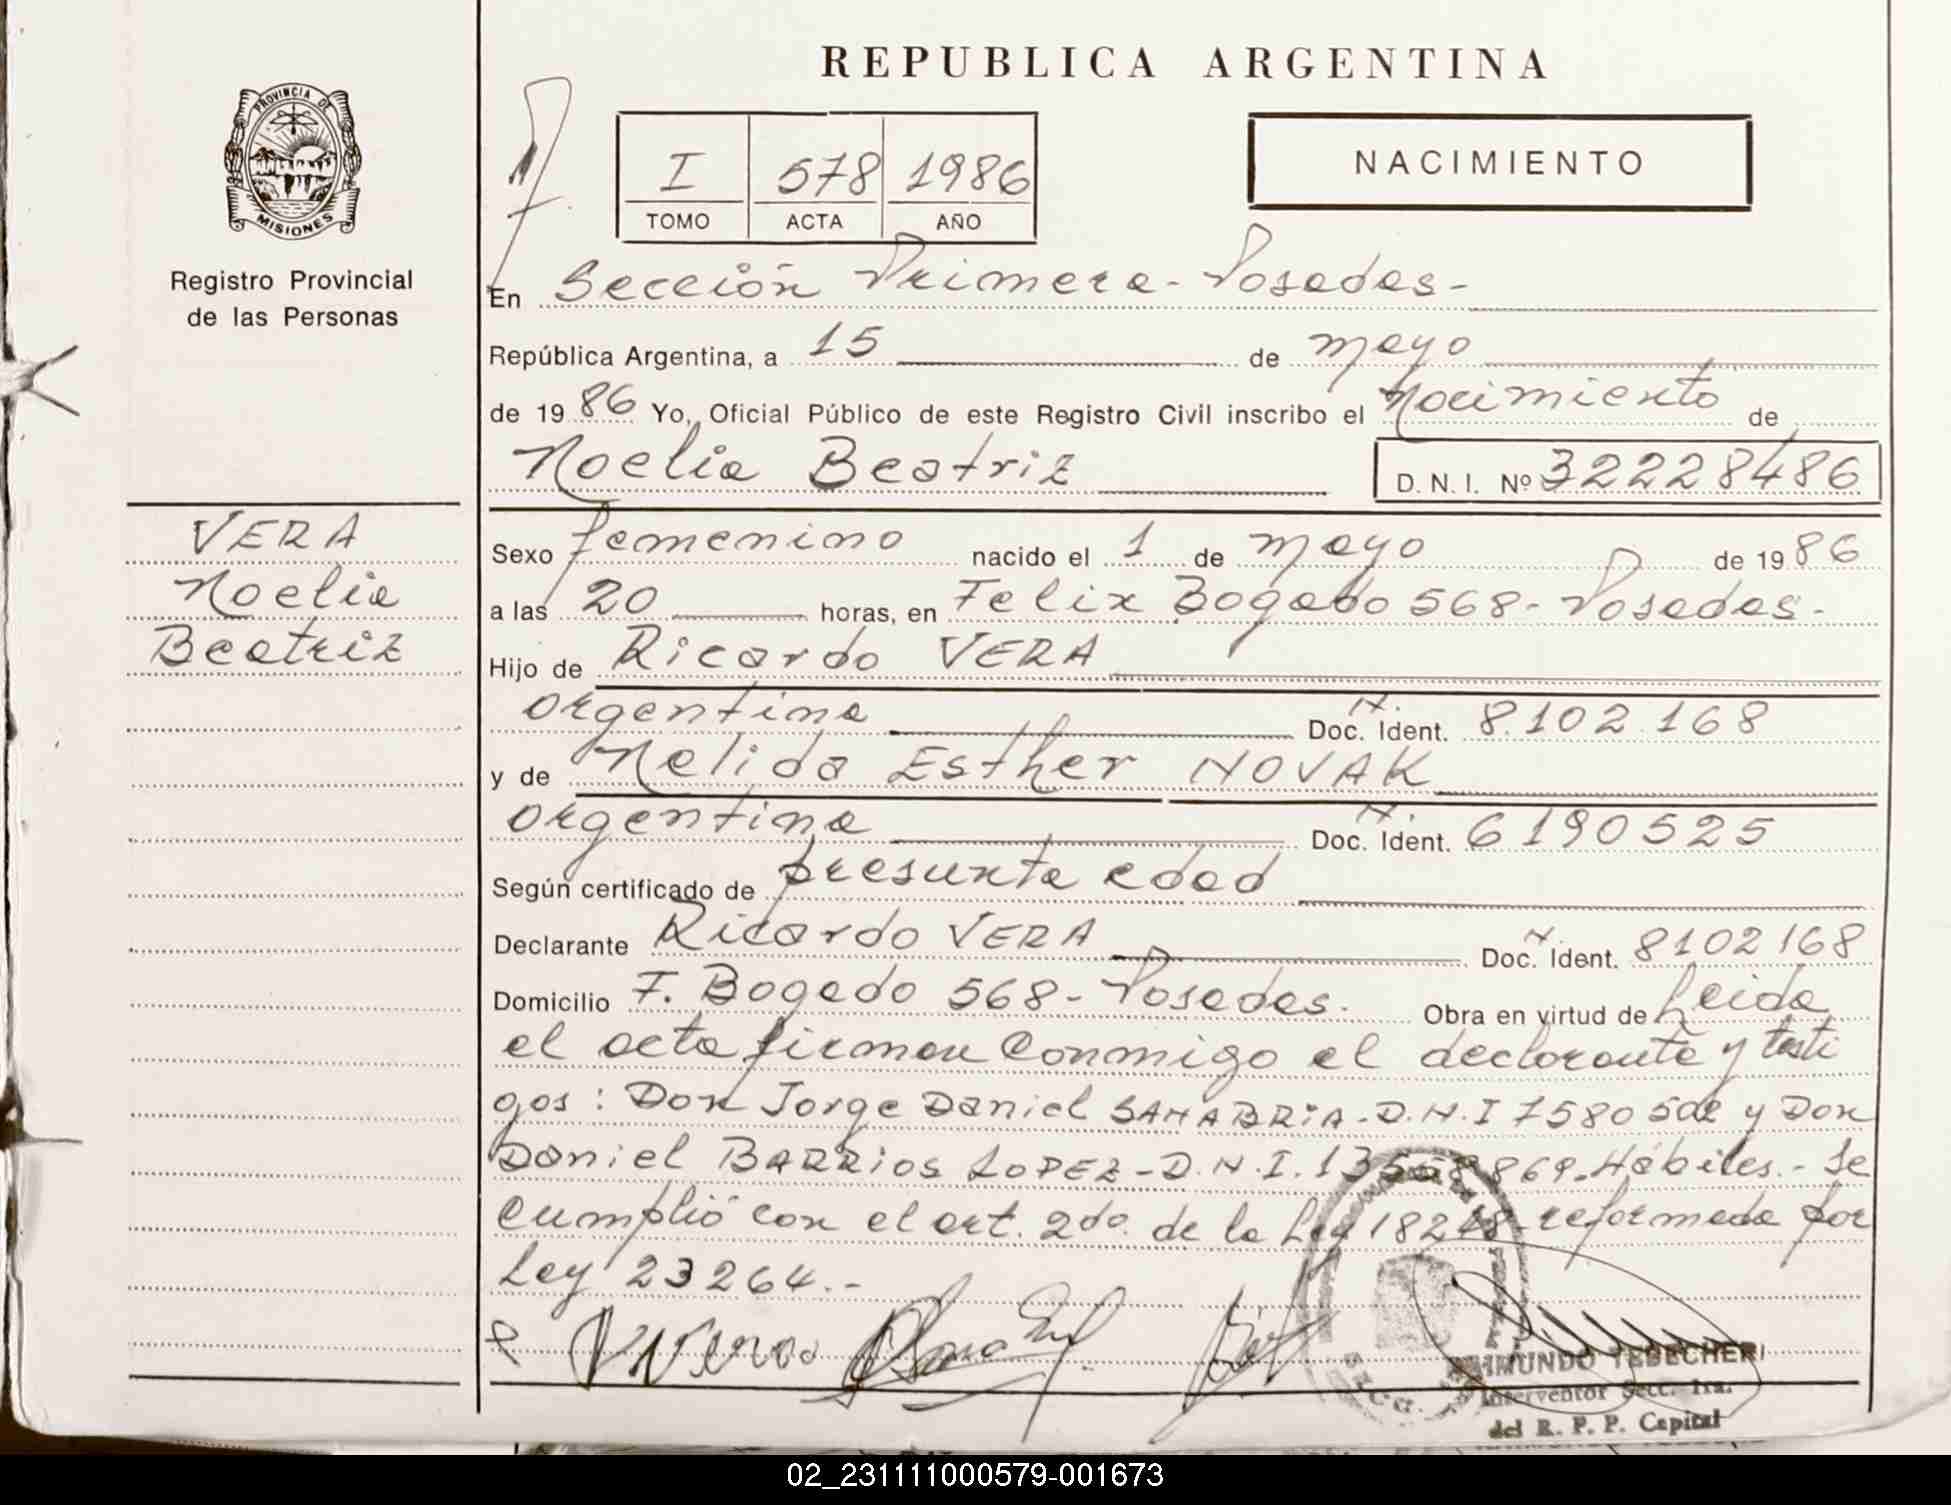 REPUBLICA ARGENTINA
PROVINCIA DE
MISIONES
Registro Provincial
de las Personas
I 578 1986
TOMO ACTA AÑO
NACIMIENTO
En Sección Primera - Posadas -
República Argentina, a 15 de mayo
de 1986 Yo, Oficial Público de este Registro Civil inscribo el Nacimiento de
Noelia Beatriz D. N. I. Nº 32228486
VERA
Noelia
Beatriz
Sexo femenino nacido el 1 de mayo de 1986
a las 20 horas, en Felix Bogado 568 - Posadas -
Hijo de Ricardo VERA
argentina Doc. Ident. 8.102.168
y de Nelida Esther NOVAK
argentina Doc. Ident. 6190525
Según certificado de presunta edad
Declarante Ricardo VERA Doc. Ident. 8102168
Domicilio F. Bogado 568 - Posadas. Obra en virtud de Leida
el acta firman conmigo el declarante y testi
gos: Don Jorge Daniel SANABRIA - D.N.I 7580502 y Don
Daniel BARRIOS LOPEZ - D.N.I. 869 - Hábiles. - Se
cumplió con el art. 2do. de la Ley 18248 - reformada por
Ley 23264. -
RAIMUNDO TEBECHERI
Interventor Secc. 1ra.
del R. P. P. Capital
02_231111000579-001673